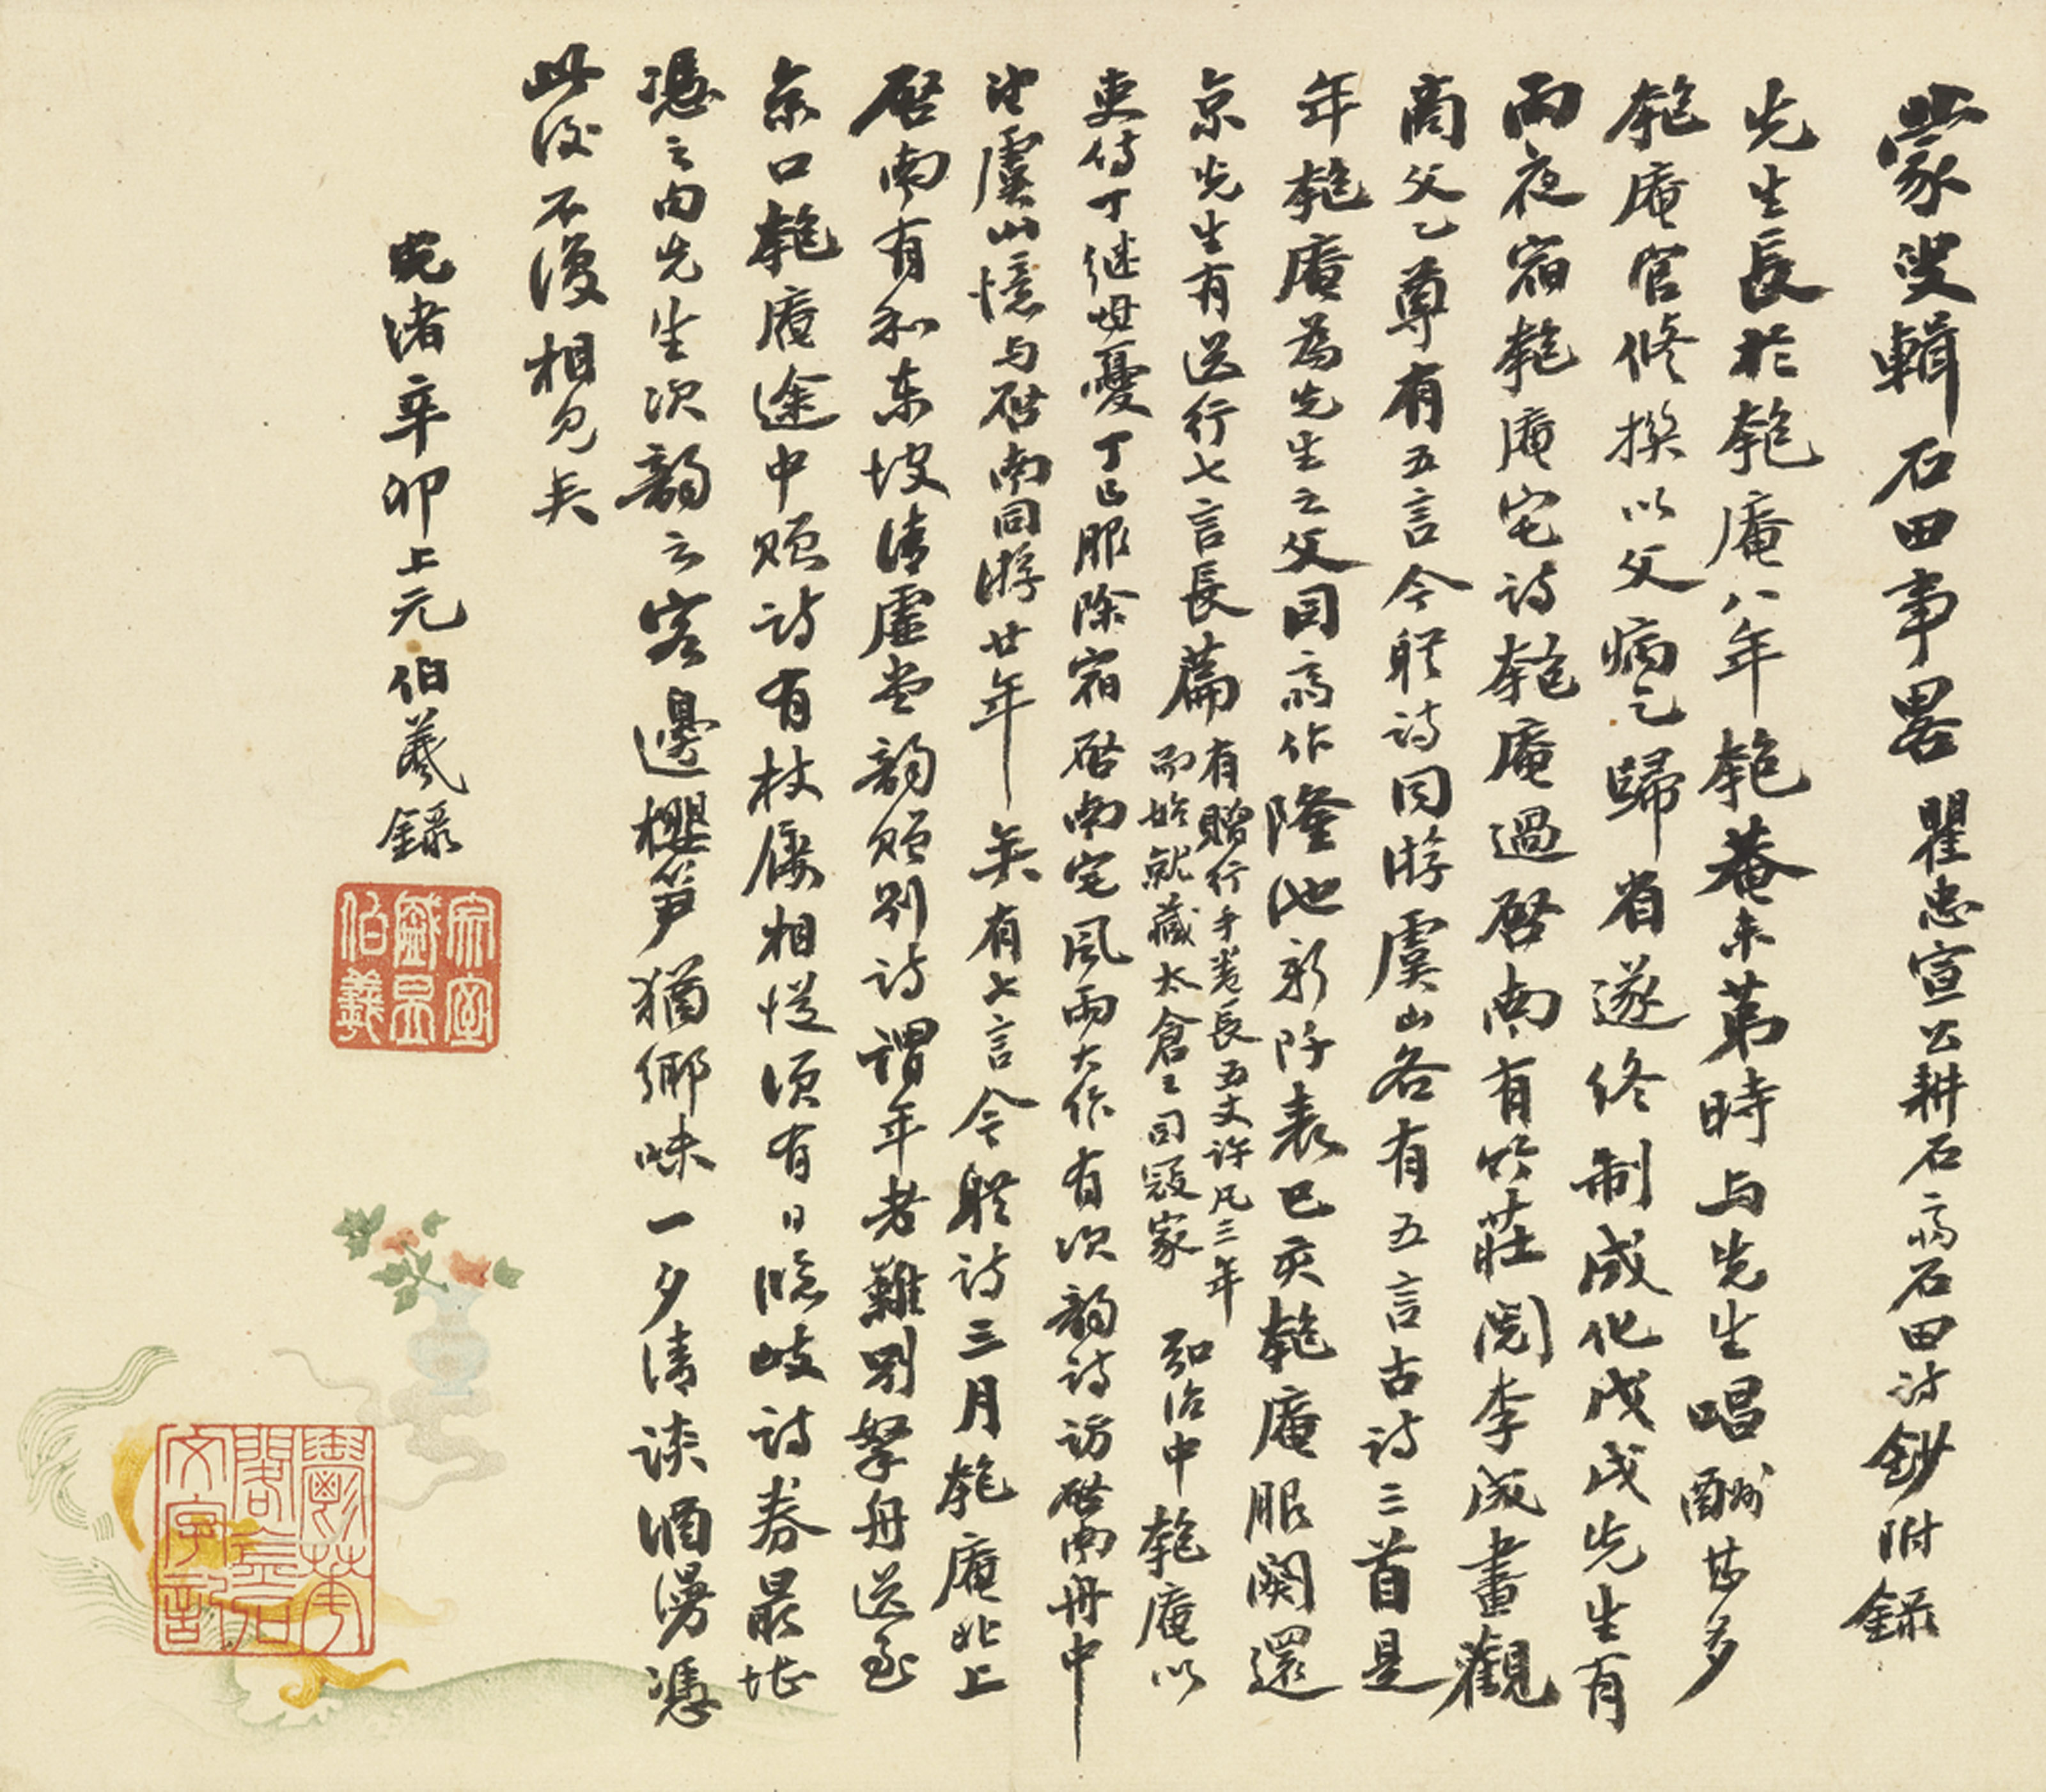 蒙叟輯石田事畧瞿忠宣公耕石齋石田詩鈔附錄
先生長於匏庵八年匏菴未第時与先生唱酬甚多
匏庵官修撰以父病乞歸省遂終制成化戊戌先生有
雨夜宿匏庵宅詩匏庵過啓南有竹莊閱李成畫觀
商父乙尊有五言今體詩同游虞山各有五言古詩三首是
年匏庵為先生之父同齋作隆池新阡表己亥匏庵服闋還
京先生有送行七言長篇
有贈行手卷長五丈許凡三年
而始就藏太倉王司寇家
弘治中匏庵以
吏侍丁継母憂丁巳服除宿啓南宅風雨大作有次韵詩訪啓南舟中
望虞山憶与啓南同游廿年矣有七言今體詩三月匏庵北上
啓南有和东坡清虛堂韵贈别詩謂年老難别拏舟送至
京口匏庵途中贈詩有杖屨相從須有日臨岐詩券最堪
憑之句先生次韵云客邊櫻笋猶鄉味一夕清談酒漫憑
此後不復相見矣
光緒辛卯上元伯羲錄
宗室
盛昱
伯羲
鬱華
閣金石
文字記